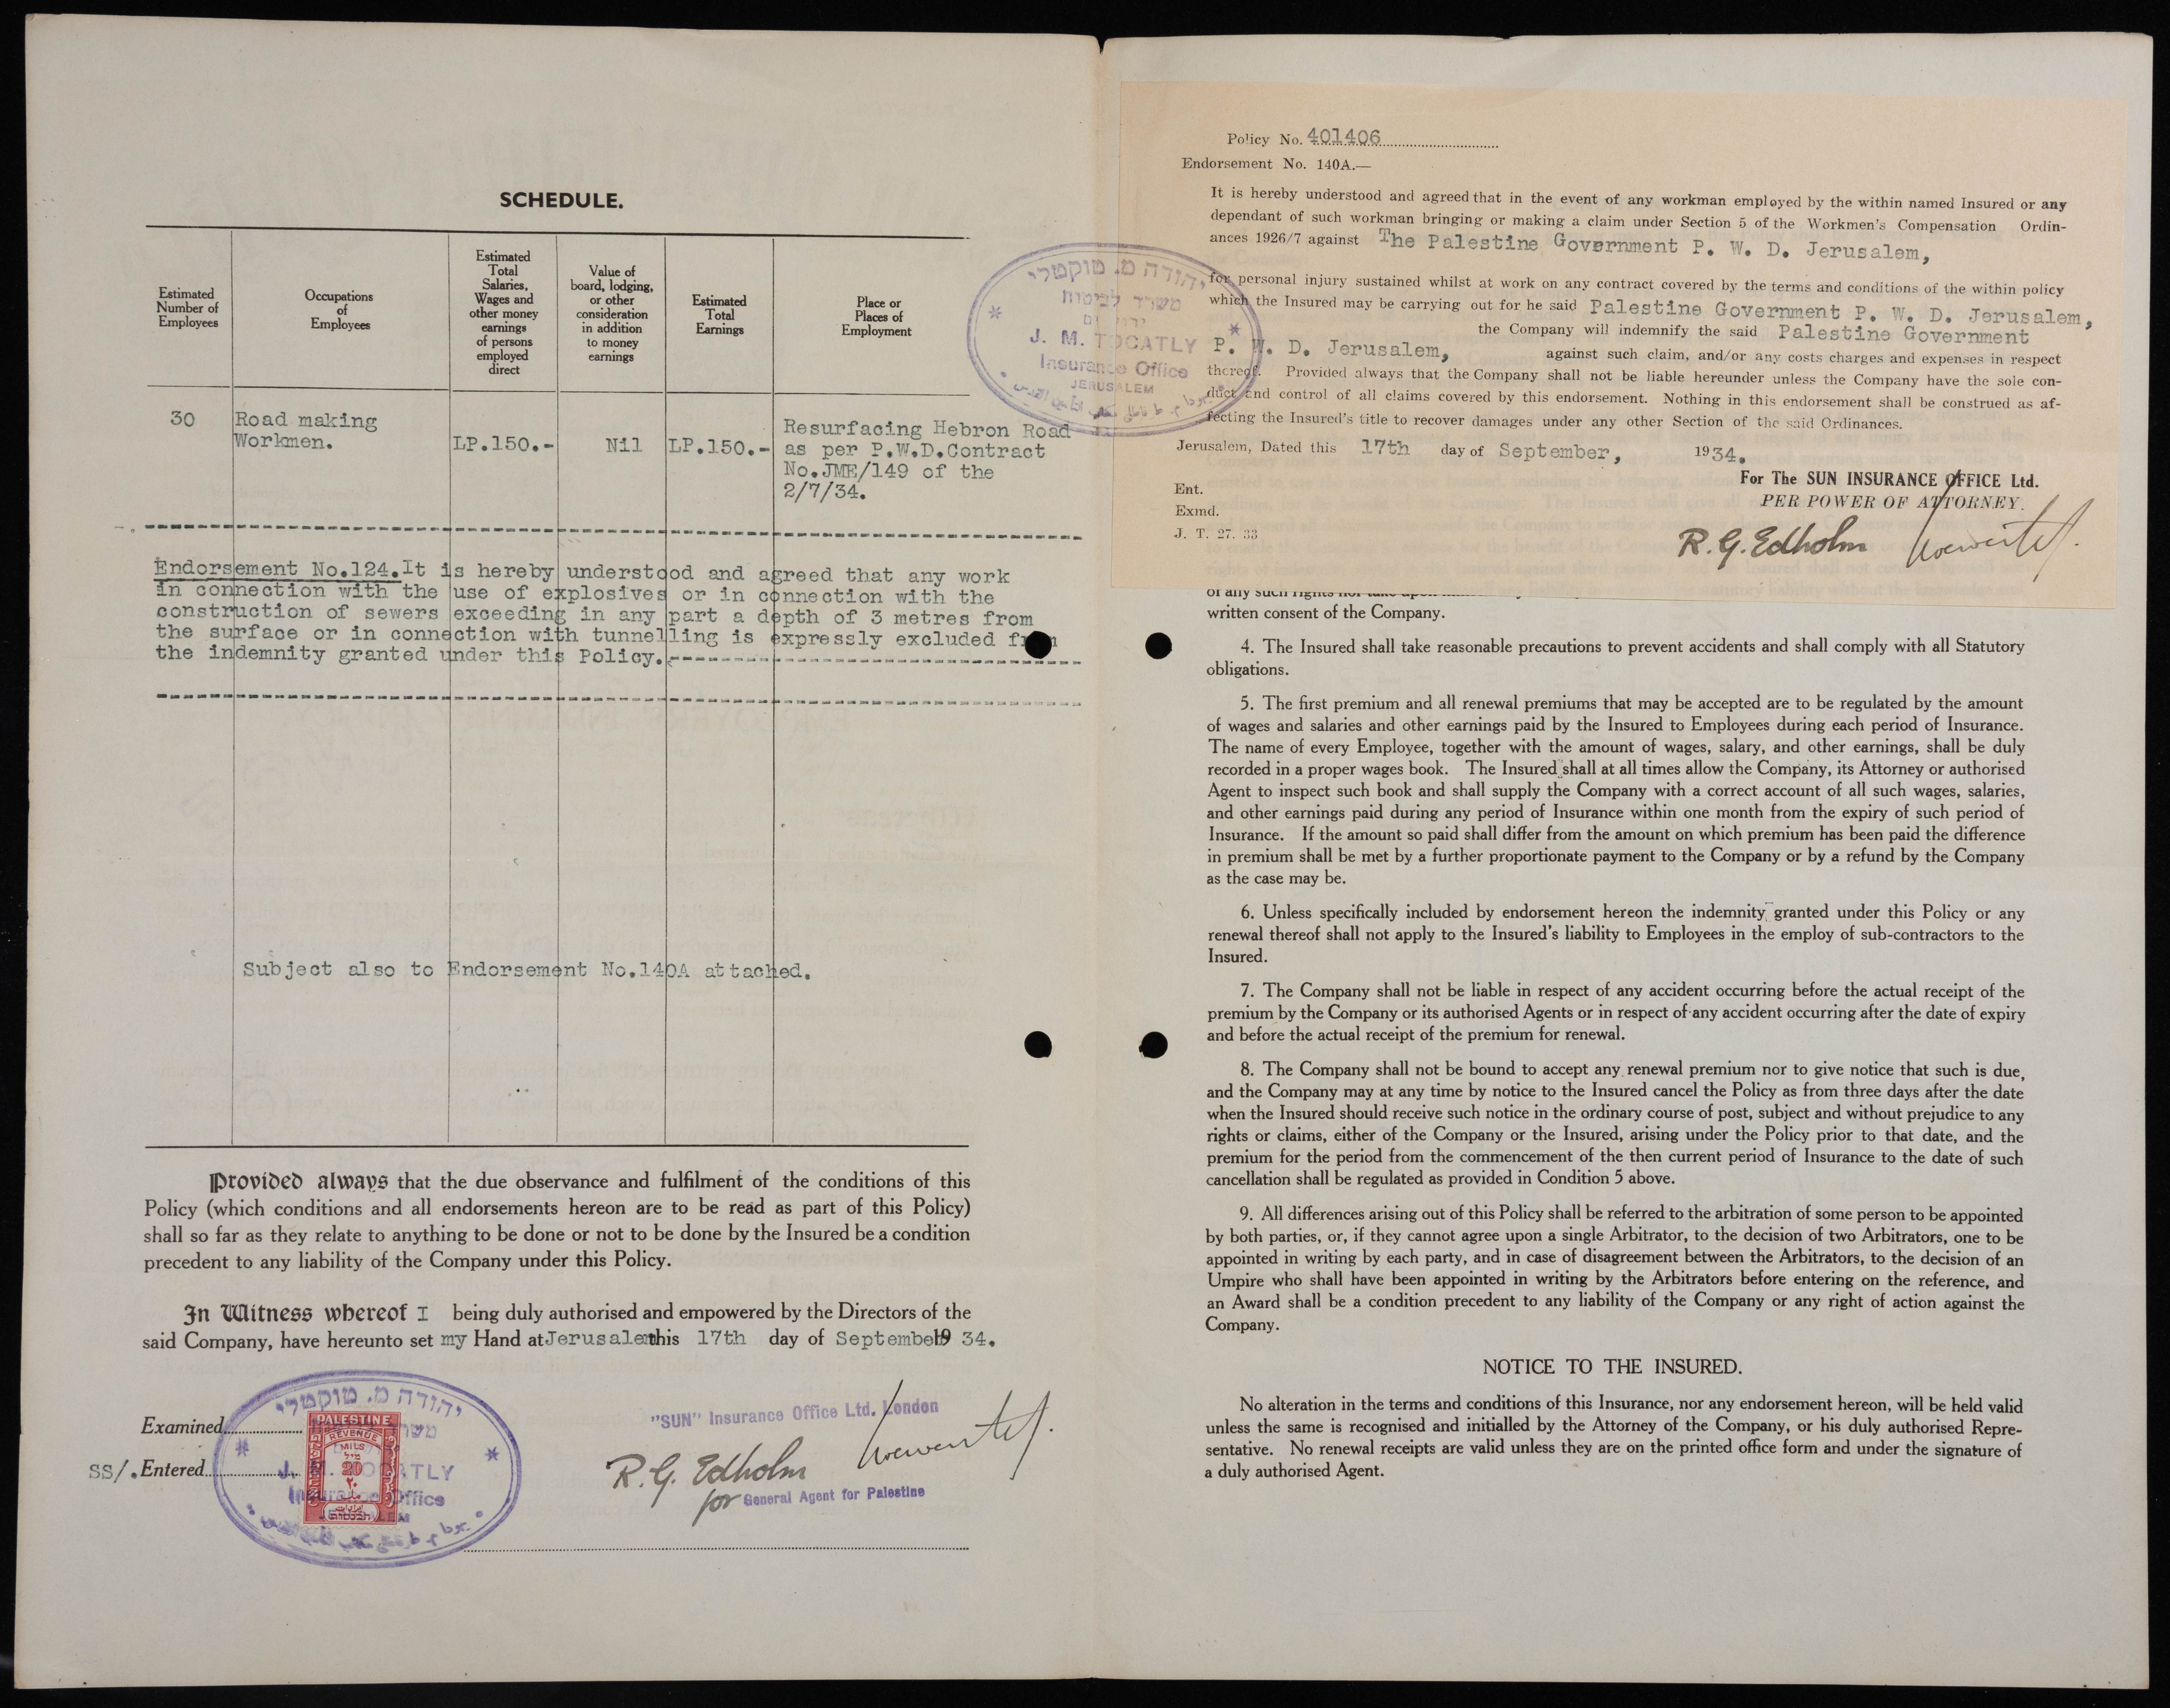 SCHEDULE.
Estimated
Number of
Employees
Occupations
of
Employees
Estimated
Total
Salaries,
Wages and
other money
earnings
of persons
employed
direct
Value of
board, lodging,
or other
consideration
in addition
to money
earnings
Estimated
Total
Earnings
Place or
Places of
Employment
30
Road making
Workmen.
LP.150.-
Nil
LP.150.-
Resurfacing Hebron Road
as per P.W.D.Contract
No.JME/149 of the
2/7/34.
Endorsement No.124.It is hereby understood and agreed that any work
in connection with the use of explosives or in connection with the
construction of sewers exceeding in any part a depth of 3 metres from
the surface or in connection with tunnelling is expressly excluded from
the indemnity granted under this Policy.
Subject also to Endorsement No.140A attached.
Provided always that the due observance and fulfilment of the conditions of this
Policy (which conditions and all endorsements hereon are to be read as part of this Policy)
shall so far as they relate to anything to be done or not to be done by the Insured be a condition
precedent to any liability of the Company under this Policy.
In Witness whereof I being duly authorised and empowered by the Directors of the
said Company, have hereunto set my Hand at Jerusalem this 17th day of September 19 34.
Examined
SS/. Entered
יהודה מ. טוקטלי
J. M. TOCATLY
Insurance Office
JERUSALEM
PALESTINE
REVENUE
MILS
20
٢٠
"SUN" Insurance Office Ltd. London
R. G. Edholm
for General Agent for Palestine
יהודה מ. טוקטלי
משרד לביטוח
ירושלים
J. M. TOCATLY
Insurance Office
JERUSALEM
Policy No. 401406
Endorsement No. 140A.—
It is hereby understood and agreed that in the event of any workman employed by the within named Insured or any
dependant of such workman bringing or making a claim under Section 5 of the Workmen's Compensation Ordin-
ances 1926/7 against The Palestine Government P. W. D. Jerusalem,
for personal injury sustained whilst at work on any contract covered by the terms and conditions of the within policy
which the Insured may be carrying out for he said Palestine Government P. W. D. Jerusalem,
the Company will indemnify the said Palestine Government
P. W. D. Jerusalem, against such claim, and/or any costs charges and expenses in respect
thereof. Provided always that the Company shall not be liable hereunder unless the Company have the sole con-
duct and control of all claims covered by this endorsement. Nothing in this endorsement shall be construed as af-
fecting the Insured's title to recover damages under any other Section of the said Ordinances.
Jerusalem, Dated this 17th day of September, 1934.
For The SUN INSURANCE OFFICE Ltd.
PER POWER OF ATTORNEY.
Ent.
Exmd.
J. T. 27. 33
R. G. Edholm
of any such rights nor take upon
written consent of the Company.
4. The Insured shall take reasonable precautions to prevent accidents and shall comply with all Statutory
obligations.
5. The first premium and all renewal premiums that may be accepted are to be regulated by the amount
of wages and salaries and other earnings paid by the Insured to Employees during each period of Insurance.
The name of every Employee, together with the amount of wages, salary, and other earnings, shall be duly
recorded in a proper wages book. The Insured shall at all times allow the Company, its Attorney or authorised
Agent to inspect such book and shall supply the Company with a correct account of all such wages, salaries,
and other earnings paid during any period of Insurance within one month from the expiry of such period of
Insurance. If the amount so paid shall differ from the amount on which premium has been paid the difference
in premium shall be met by a further proportionate payment to the Company or by a refund by the Company
as the case may be.
6. Unless specifically included by endorsement hereon the indemnity granted under this Policy or any
renewal thereof shall not apply to the Insured's liability to Employees in the employ of sub-contractors to the
Insured.
7. The Company shall not be liable in respect of any accident occurring before the actual receipt of the
premium by the Company or its authorised Agents or in respect of any accident occurring after the date of expiry
and before the actual receipt of the premium for renewal.
8. The Company shall not be bound to accept any renewal premium nor to give notice that such is due,
and the Company may at any time by notice to the Insured cancel the Policy as from three days after the date
when the Insured should receive such notice in the ordinary course of post, subject and without prejudice to any
rights or claims, either of the Company or the Insured, arising under the Policy prior to that date, and the
premium for the period from the commencement of the then current period of Insurance to the date of such
cancellation shall be regulated as provided in Condition 5 above.
9. All differences arising out of this Policy shall be referred to the arbitration of some person to be appointed
by both parties, or, if they cannot agree upon a single Arbitrator, to the decision of two Arbitrators, one to be
appointed in writing by each party, and in case of disagreement between the Arbitrators, to the decision of an
Umpire who shall have been appointed in writing by the Arbitrators before entering on the reference, and
an Award shall be a condition precedent to any liability of the Company or any right of action against the
Company.
NOTICE TO THE INSURED.
No alteration in the terms and conditions of this Insurance, nor any endorsement hereon, will be held valid
unless the same is recognised and initialled by the Attorney of the Company, or his duly authorised Repre-
sentative. No renewal receipts are valid unless they are on the printed office form and under the signature of
a duly authorised Agent.